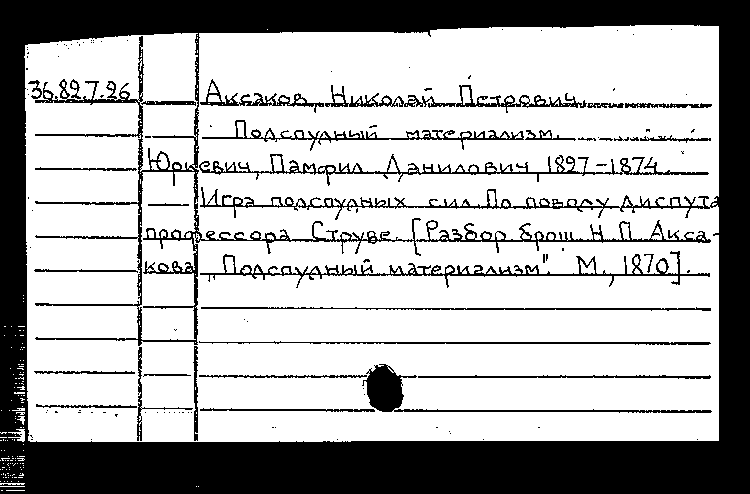 36.82.7.26 Аксаков, Николай Петрович.
Подспудный материализм.
Юркевич, Памфил Данилович, 1827-1874.
Игра подспудных сил. По поводу диспута
профессора Струве. [Разбор брош. Н. П. Акса-
кова „Подспудный материализм". М., 1870].